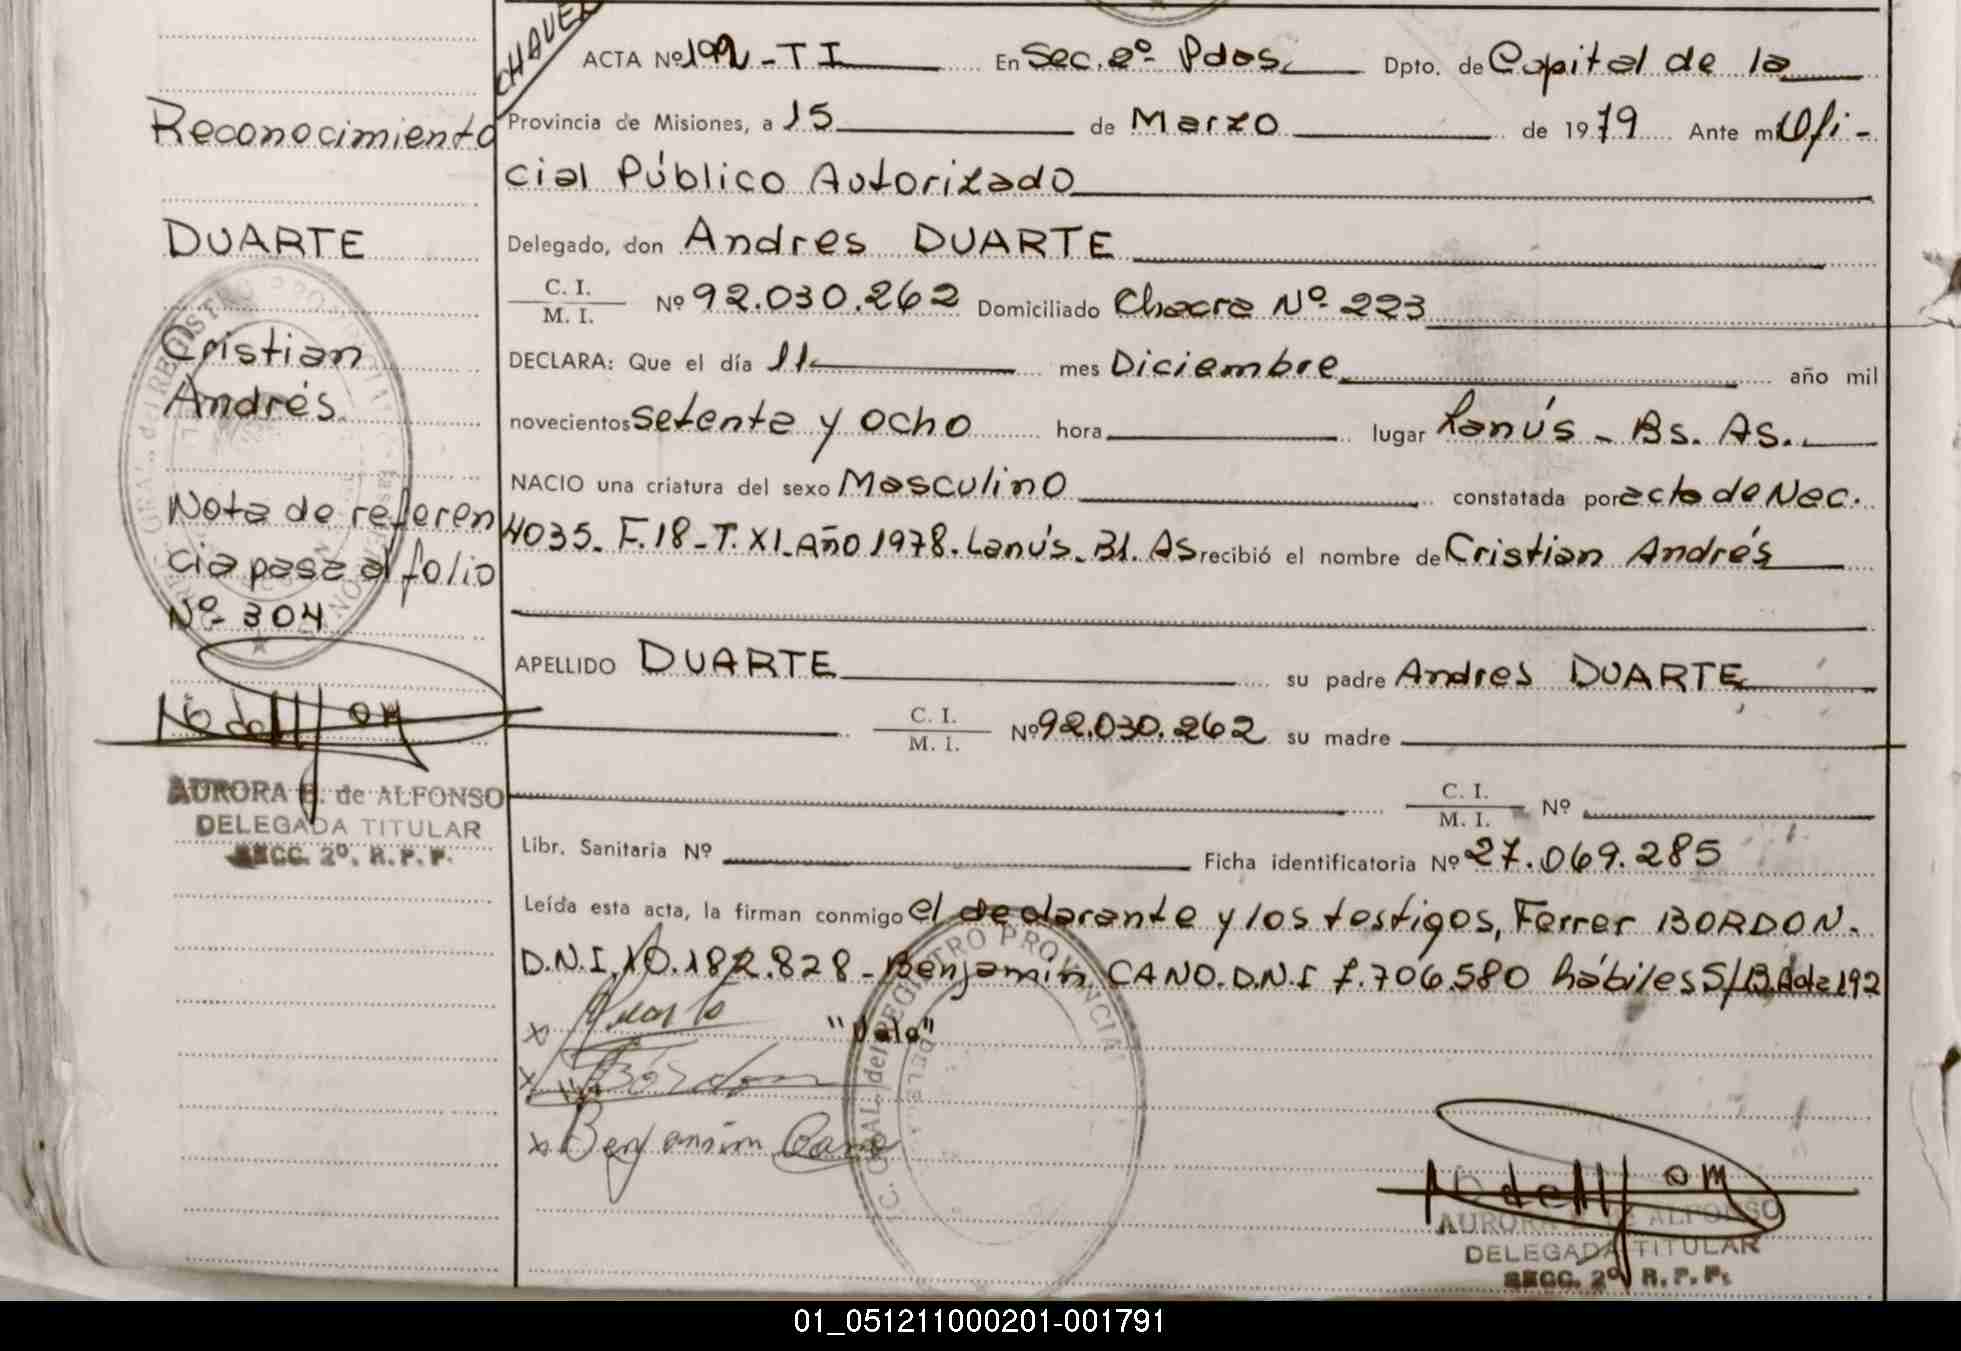 CHAVEZ
ACTA Nº 192 - T I En Sec. 2º Pdas. Dpto. de Capital de la
Provincia de Misiones, a 15 de Marzo de 1979 Ante mi Ofi-
cial Público Autorizado
Delegado, don Andres DUARTE
C. I.
M. I. Nº 92.030.262 Domiciliado Chacra Nº 223
DECLARA: Que el día 11 mes Diciembre año mil
novecientos setenta y ocho hora lugar Lanús - Bs. As.
NACIO una criatura del sexo Masculino constatada por acta de Nac.
4035. F. 18 - T. XI. Año 1978. Lanús. Bs. As recibió el nombre de Cristian Andrés
APELLIDO DUARTE su padre Andres DUARTE
C. I.
M. I. Nº 92.030.262 su madre
C. I.
M. I. Nº
Libr. Sanitaria Nº Ficha identificatoria Nº 27.069.285
Leída esta acta, la firman conmigo el declarante y los testigos, Ferrer BORDON.
D.N.I. 10.182.828 - Benjamin CANO. D.N.I 7.706.580 hábiles S/B. Acta 192
"Vale"
x Duarte
x Bórdon
x Benjamin Cano
AURORA B. DE ALFONSO
DELEGADA TITULAR
SECC. 2º. R. P. P.
Reconocimiento
DUARTE
Cristian
Andrés
Nota de referen
cia pasa al folio
Nº 304
AURORA B. de ALFONSO
DELEGADA TITULAR
SECC. 2º. R. P. P.
GRAL. del REGISTRO PROVINCIAL
GRAL. del REGISTRO PROVINCIAL
01_051211000201-001791